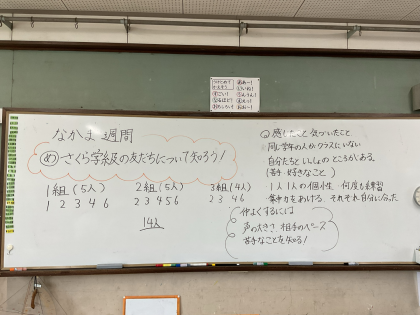 なかま週間
め さくら学級の友だちについて知ろう!
1組(5人) 2組(5人) 3組(4人)
1 2 3 4 6 2 3 4 5 6 2 3 4 6
14人
感じたこと 気づいたこと
同じ学年の人がクラスにいない
自分たちと いっしょの ところがある。
(苦手・好きなこと)
1人1人の個性 何度も練習
それぞれ自分に合った
仲よくするには
声の大きさ、相手のペース
苦手なことを知る!